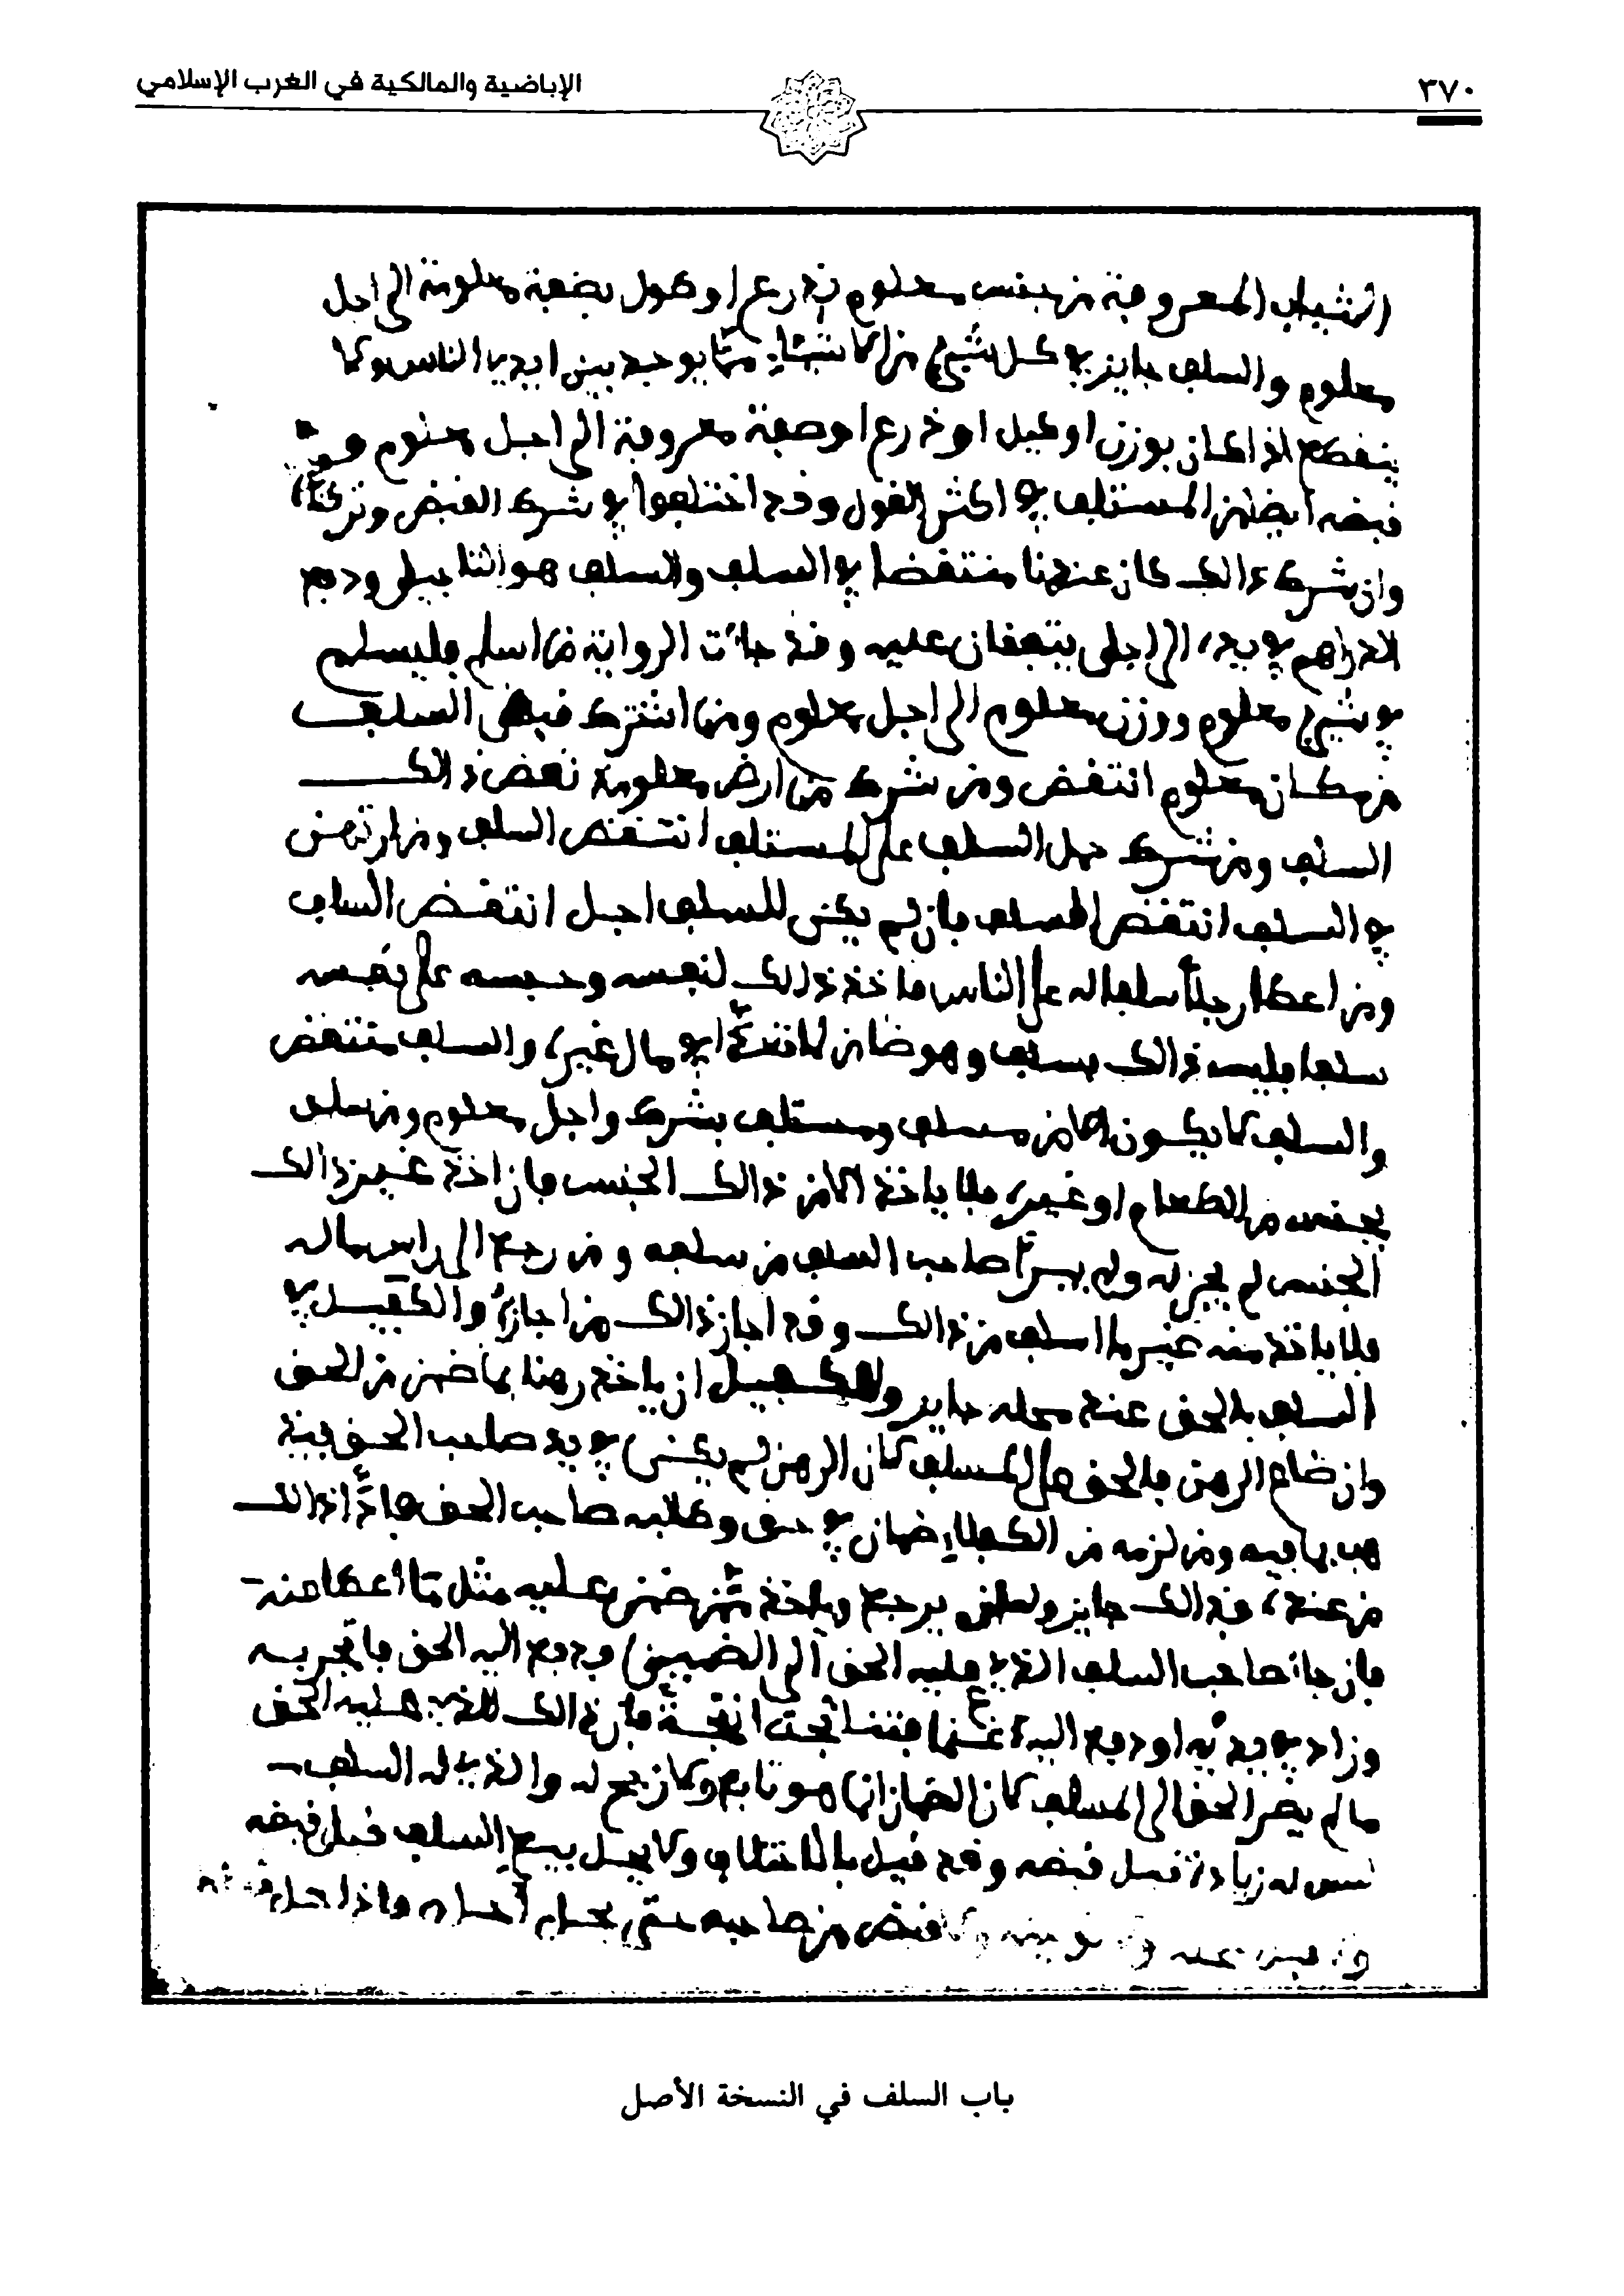 ٣٧٠
الإباضية والمالكية في الغرب الإسلامي
الثياب المعروفة من جنس معلوم بذرع او طول بصفة معلومة الى اجل
معلوم والسلف جايز في كل شيء من الاشياء مما يوجد بين ايدي الناس ولا
ينقطع اذا كان بوزن او كيل او ذرع او صفة معروفة الى اجل معلوم
قبضه ايضا من المستلف في اكثر القول وقد اختلفوا في شرط القبض وتركه
وان شرط ذالك كان عندنا منتقضا في السلف والسلف هو التاجيل ودفع
الدراهم في يده الى اجل يتفقان عليه وقد جائت الرواية من اسلم فليسلم
في شيء معلوم ووزن معلوم الى اجل معلوم ومن اشترط قبض السلف
من مكان معلوم انتقض ومن شرط من ارض معلومة نقض ذالك
السلف ومن شرط حمل السلف على المستلف انتقض السلف ومن ارتهن
في السلف انتقض السلف فان لم يكن للسلف اجل انتقض السلف
ومن اعطا رجلا سلفا له على الناس فاخذ ذالك لنفسه وحبسه على نفسه
سلفا فليس ذالك بسلف وهو ضامن في مال غيره والسلف منتقض
والسلف لا يكون الا من مسلف ومستلف بشرط واجل معلوم ومن سلف
بجنس من الطعام او غيره فلا ياخذ الا من ذالك الجنس فان اخذ غير ذالك
الجنس لم يجز له ولم يبرأ صاحب السلف من سلفه ومن رجع الى راس ماله
فلا ياخذ منه غير ما اسلف من ذالك وقد اجاز ذالك من اجازه والكفيل في
السلف بالحق عند محله جايز وللكفيل ان ياخذ رهنا بما ضمن من الحق
وان ضاع الرهن فالحق على المسلف كان الرهن لم يكن في يد صاحب الحق فيذهب
بما فيه ومن لزمه من الكفلاء ضمان في حق وطلبه صاحب الحق فاذا ذالك
من عنده فذالك جايز ولمن يرجع وياخذ ممن ضمن عليه مثل ما أعطا عنه
فان جاء صاحب السلف الذي عليه الحق الى الضمين ودفع اليه الحق فاتجر به
وزاد في يديه او دفع اليه غنما فتناتجت فان ذالك للذي عليه الحق
ما لم يصر الحق الى المسلف كان الضمان انما هو تابع وكان ربح له والذي له السلف
ليس له زيادة قبل قبضه وقد قيل بالاختلاف ولا يحل بيع السلف قبل قبضه
قبض من صاحبه حتى يحل أجله واذا حل
باب السلف في النسخة الأصل